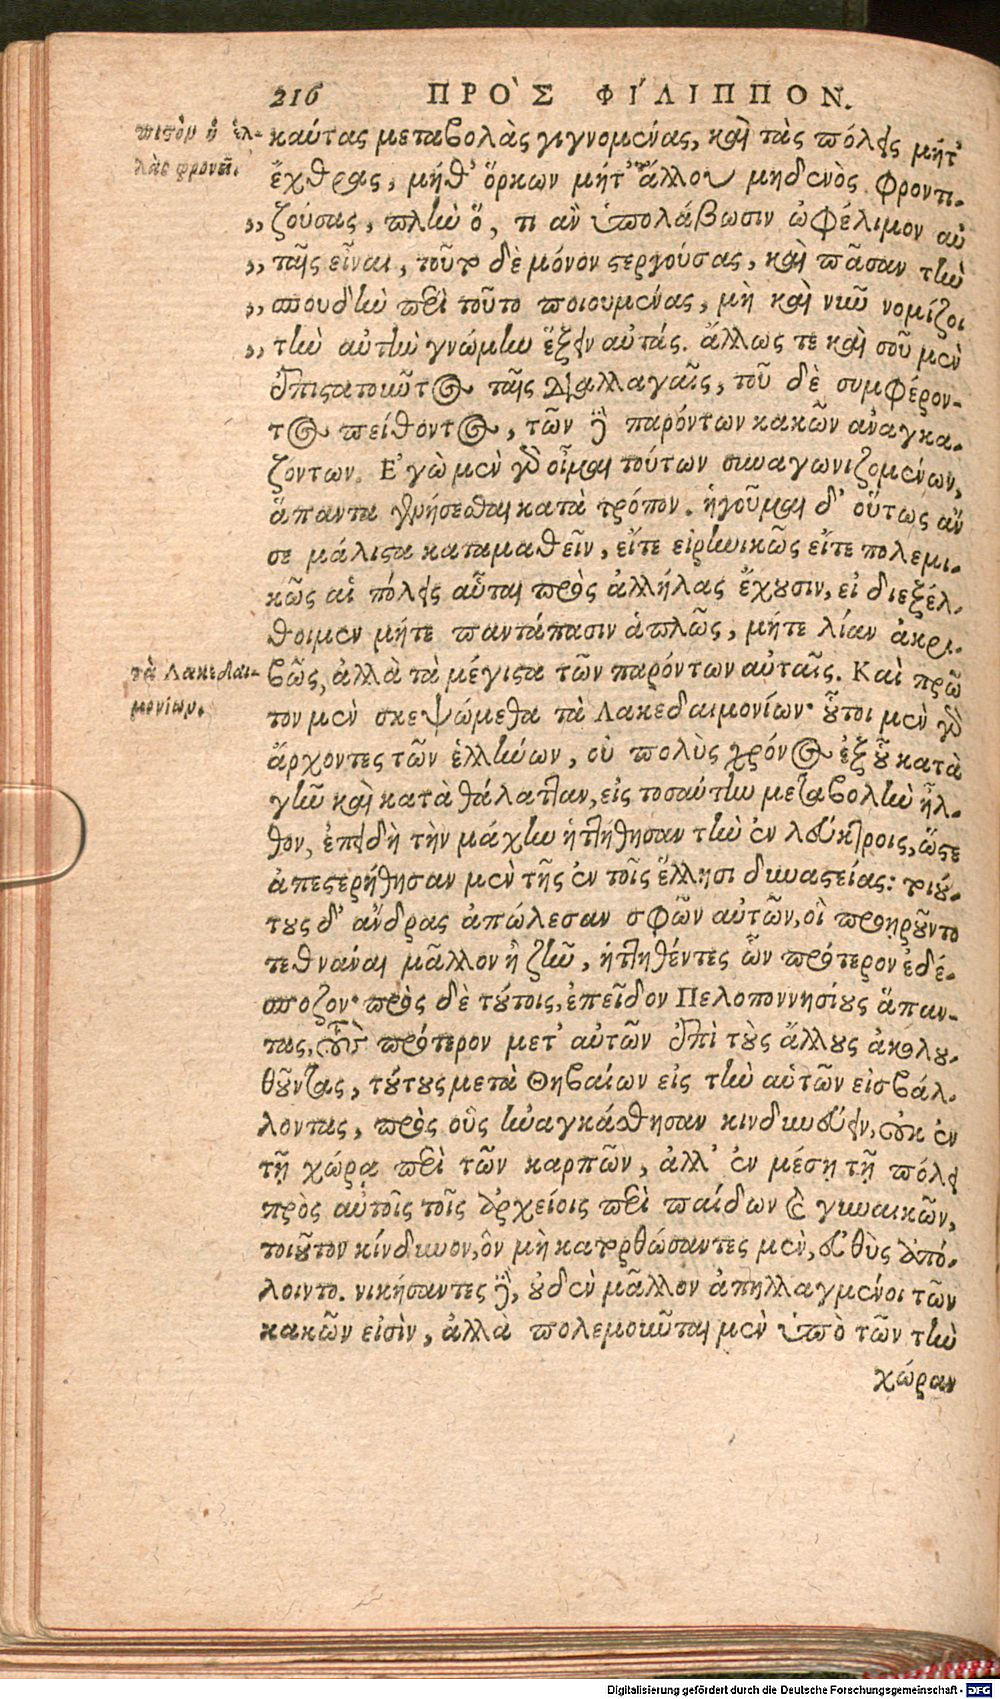 216 ΠΡΟ`Σ ΦΙ´ΛΙΠΠΟΝ.
πιτὸν ἡ ἑλ-
λὰς φρονεῖ.
καύτας μεταβολὰς γιγνομένας, καὶ τὰς πόλεις μήτ'
ἔχθρας, μήθ' ὅρκων μήτ' ἄλλου μηδενὸς φροντι-
,, ζούσας, πλὴν ὅ, τι ἂν ὑπολάβωσιν ὠφέλιμον αὐ
,, ταῖς εἶναι, τοῦτο δὲ μόνον στεργούσας, καὶ πᾶσαν τὴν
,, σπουδὴν περὶ τοῦτο ποιουμένας, μὴ καὶ νῦν νομίζοι
,, τὴν αὐτὴν γνώμην ἕξειν αὐτάς. ἄλλως τε καὶ σοῦ μὲν
ἐπιστατοῦντος ταῖς διαλλαγαῖς, τοῦ δὲ συμφέρον-
τος πείθοντος, τῶν δὲ παρόντων κακῶν ἀναγκα-
ζόντων. Ἐγὼ μὲν γὰρ οἶμαι τούτων συναγωνιζομένων,
ἅπαντα χρήσεσθαι κατὰ τρόπον. ἡγοῦμαι δ' οὕτως ἄν
σε μάλιστα καταμαθεῖν, εἴτε εἰρηνικῶς εἴτε πολεμι-
κῶς αἱ πόλεις αὗται πρὸς ἀλλήλας ἔχουσιν, εἰ διεξέλ-
θοιμεν μήτε παντάπασιν ἁπλῶς, μήτε λίαν ἀκρι-
τὰ Λακεδαι-
μονίων.
βῶς, ἀλλὰ τὰ μέγιστα τῶν παρόντων αὐταῖς. Καὶ πρῶ
τον μὲν σκεψώμεθα τὰ Λακεδαιμονίων· οὗτοι μὲν γὰρ
ἄρχοντες τῶν ἑλλήνων, οὐ πολὺς χρόνος ἐξ οὗ κατὰ
γῆν καὶ κατὰ θάλατταν, εἰς τοσαύτην μεταβολὴν ἦλ-
θον, ἐπειδὴ τὴν μάχην ἡττήθησαν τὴν ἐν λεύκτροις, ὥστε
ἀπεστερήθησαν μὲν τῆς ἐν τοῖς ἕλλησι δυναστείας: τοιού-
τους δ' ἄνδρας ἀπώλεσαν σφῶν αὐτῶν, οἳ προῃροῦντο
τεθνάναι μᾶλλον ἢ ζῆν, ἡττηθέντες ὧν πρότερον ἐδέ-
σποζον· πρὸς δὲ τούτοις, ἐπεῖδον Πελοποννησίους ἅπαν-
τας, τοὺς πρότερον μετ' αὐτῶν ἐπὶ τοὺς ἄλλους ἀκολου-
θοῦντας, τούτους μετὰ Θηβαίων εἰς τὴν αὑτῶν εἰσβάλ-
λοντας, πρὸς οὓς ἠναγκάσθησαν κινδυνεύειν, οὐκ ἐν
τῇ χώρᾳ περὶ τῶν καρπῶν, ἀλλ' ἐν μέσῃ τῇ πόλει
πρὸς αὐτοῖς τοῖς ἀρχείοις περὶ παίδων καὶ γυναικῶν,
τοιοῦτον κίνδυνον, ὃν μὴ κατορθώσαντες μὲν, εὐθὺς ἀπό-
λοιντο. νικήσαντες δὲ, οὐδὲν μᾶλλον ἀπηλλαγμένοι τῶν
κακῶν εἰσὶν, ἀλλὰ πολεμοῦνται μὲν ὑπὸ τῶν τὴν
χώραν
Digitalisierung gefördert durch die Deutsche Forschungsgemeinschaft - DFG